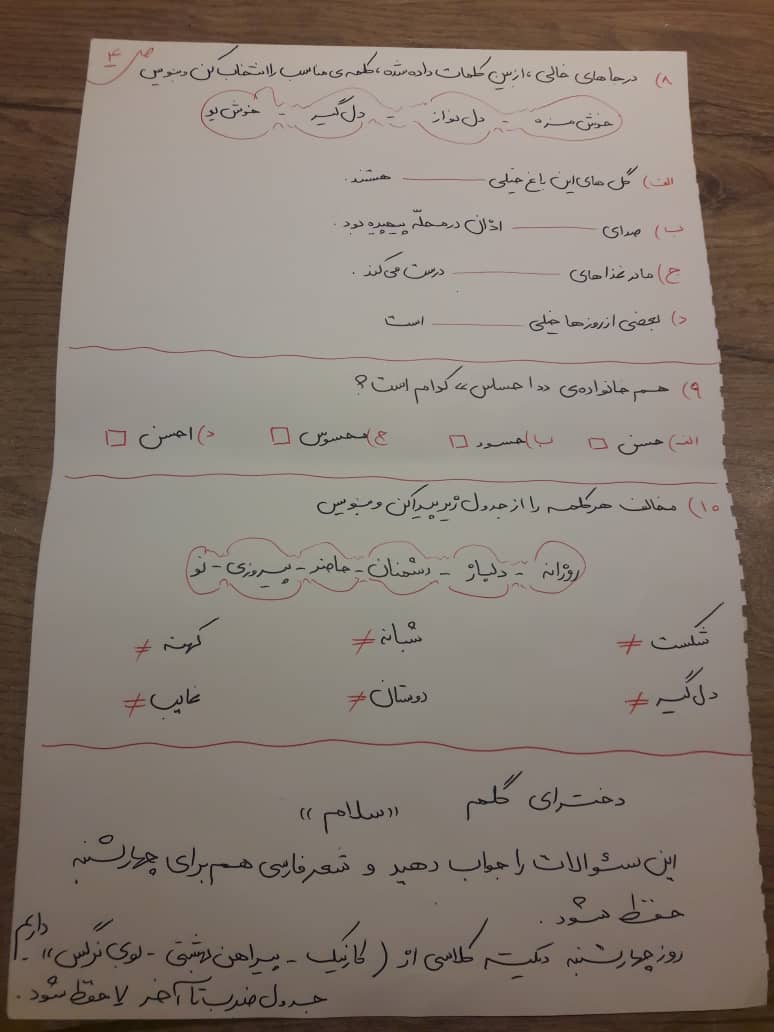 ص ۴
۸) در جاهای خالی، از بین کلمات داده شده، کلمه‌ی مناسب را انتخاب کن و بنویس
خوش مزه - دل نواز - دل گیر - خوش بو
الف) گل های این باغ خیلی ــــــ هستند.
ب) صدای ــــــ اذان در محلّه پیچیده بود.
ج) مادر غذاهای ــــــ درست می کند.
د) بعضی از روزها خیلی ــــــ است
۹) هم خانواده‌ی «احساس» کدام است؟
الف) حسن □ ب) حسود □ ج) محسوس □ د) احسن □
۱۰) مخالف هر کلمه را از جدول زیر پیدا کن و بنویس
روزانه - دلباز - دشمنان - حاضر - پیروزی - نو
شکست ≠ شبانه ≠ کهنه ≠
دل گیر ≠ دوستان ≠ غایب ≠
دخترای گلم «سلام»
این سئوالات را جواب دهید و شعر فارسی هم برای چهارشنبه
حفظ شود.
روز چهارشنبه دیکته کلاسی از (کاربیک - پیراهن بهشتی - بوی نرگس» داریم.
جدول ضرب تا آخر ۷ حفظ شود.